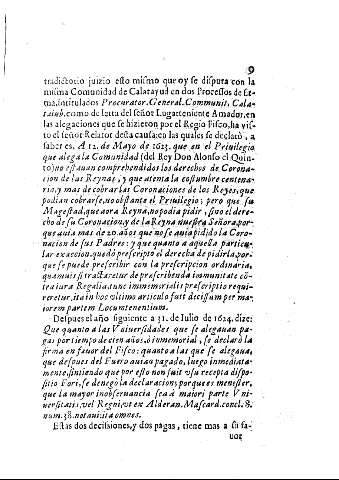 9
tradictorio juizio esto mismo que oy se disputa con la
misma Comunidad de Calatayud en dos Processos de fir-
ma, intitulados Procurator. General. Communit. Cala-
taiub. como de letra del señor Lugarteniente Amador, en
las alegaciones que se hizieron por el Regio Fisco, ha vis-
to el señor Relator desta causa en las quales se declarò, a
saber es. A 12. de Mayo de 1623. que en el Priuilegio
que alega la Comunidad (del Rey Don Alonso el Quin-
to) no estauan comprehendidos los derechos de Corona-
cion de las Reynas, y que atenta la costumbre centena-
ria, y mas de cobrar las Coronaciones de los Reyes, que
podian cobrarse, no obstante el Priuilegio; pero que su
Magestad, que aora Reyna, no podia pidir, sino el dere-
cho de su Coronacion, y de la Reyna nuestra Señora, por-
que auia mas de 20. años que no se auia pidido la Coro-
nacion de sus Padres: y que quanto a aquella particu-
lar exaccion, quedò prescripto el derecho de pidirla, por-
que se puede prescribir con la prescripcion ordinaria,
quamuis si tractaretur de prescribenda immunitate cõ-
tra iura Regalia, tunc immemorialis prescriptio requi-
reretur, ita in hoc vltimo articulo fuit decissum per ma-
iorem partem Locumtenentium.
Despues el año siguiente a 31. de Iulio de 1624. dize:
Que quanto a las Vniuersidades que se alegauan pa-
gas por tiempo de cien años, ò inmemorial, se declarò la
firma en fauor del Fisco: quanto a las que se alegaua,
que despues del Fuero auian pagado, luego inmediata-
mente, sintiendo que por esto non fuit vsu recepta dispo-
sitio Fori, se denegò la declaracion; porque es menester,
que la mayor inobseruancia sea à maiori parte Vni-
uersitatis, vel Regni, vt ex Alderan. Mascard. concl. 8.
num. 38. notauit a omnes.
Estas dos decissiones, y dos pagas, tiene mas a su fa-
uor